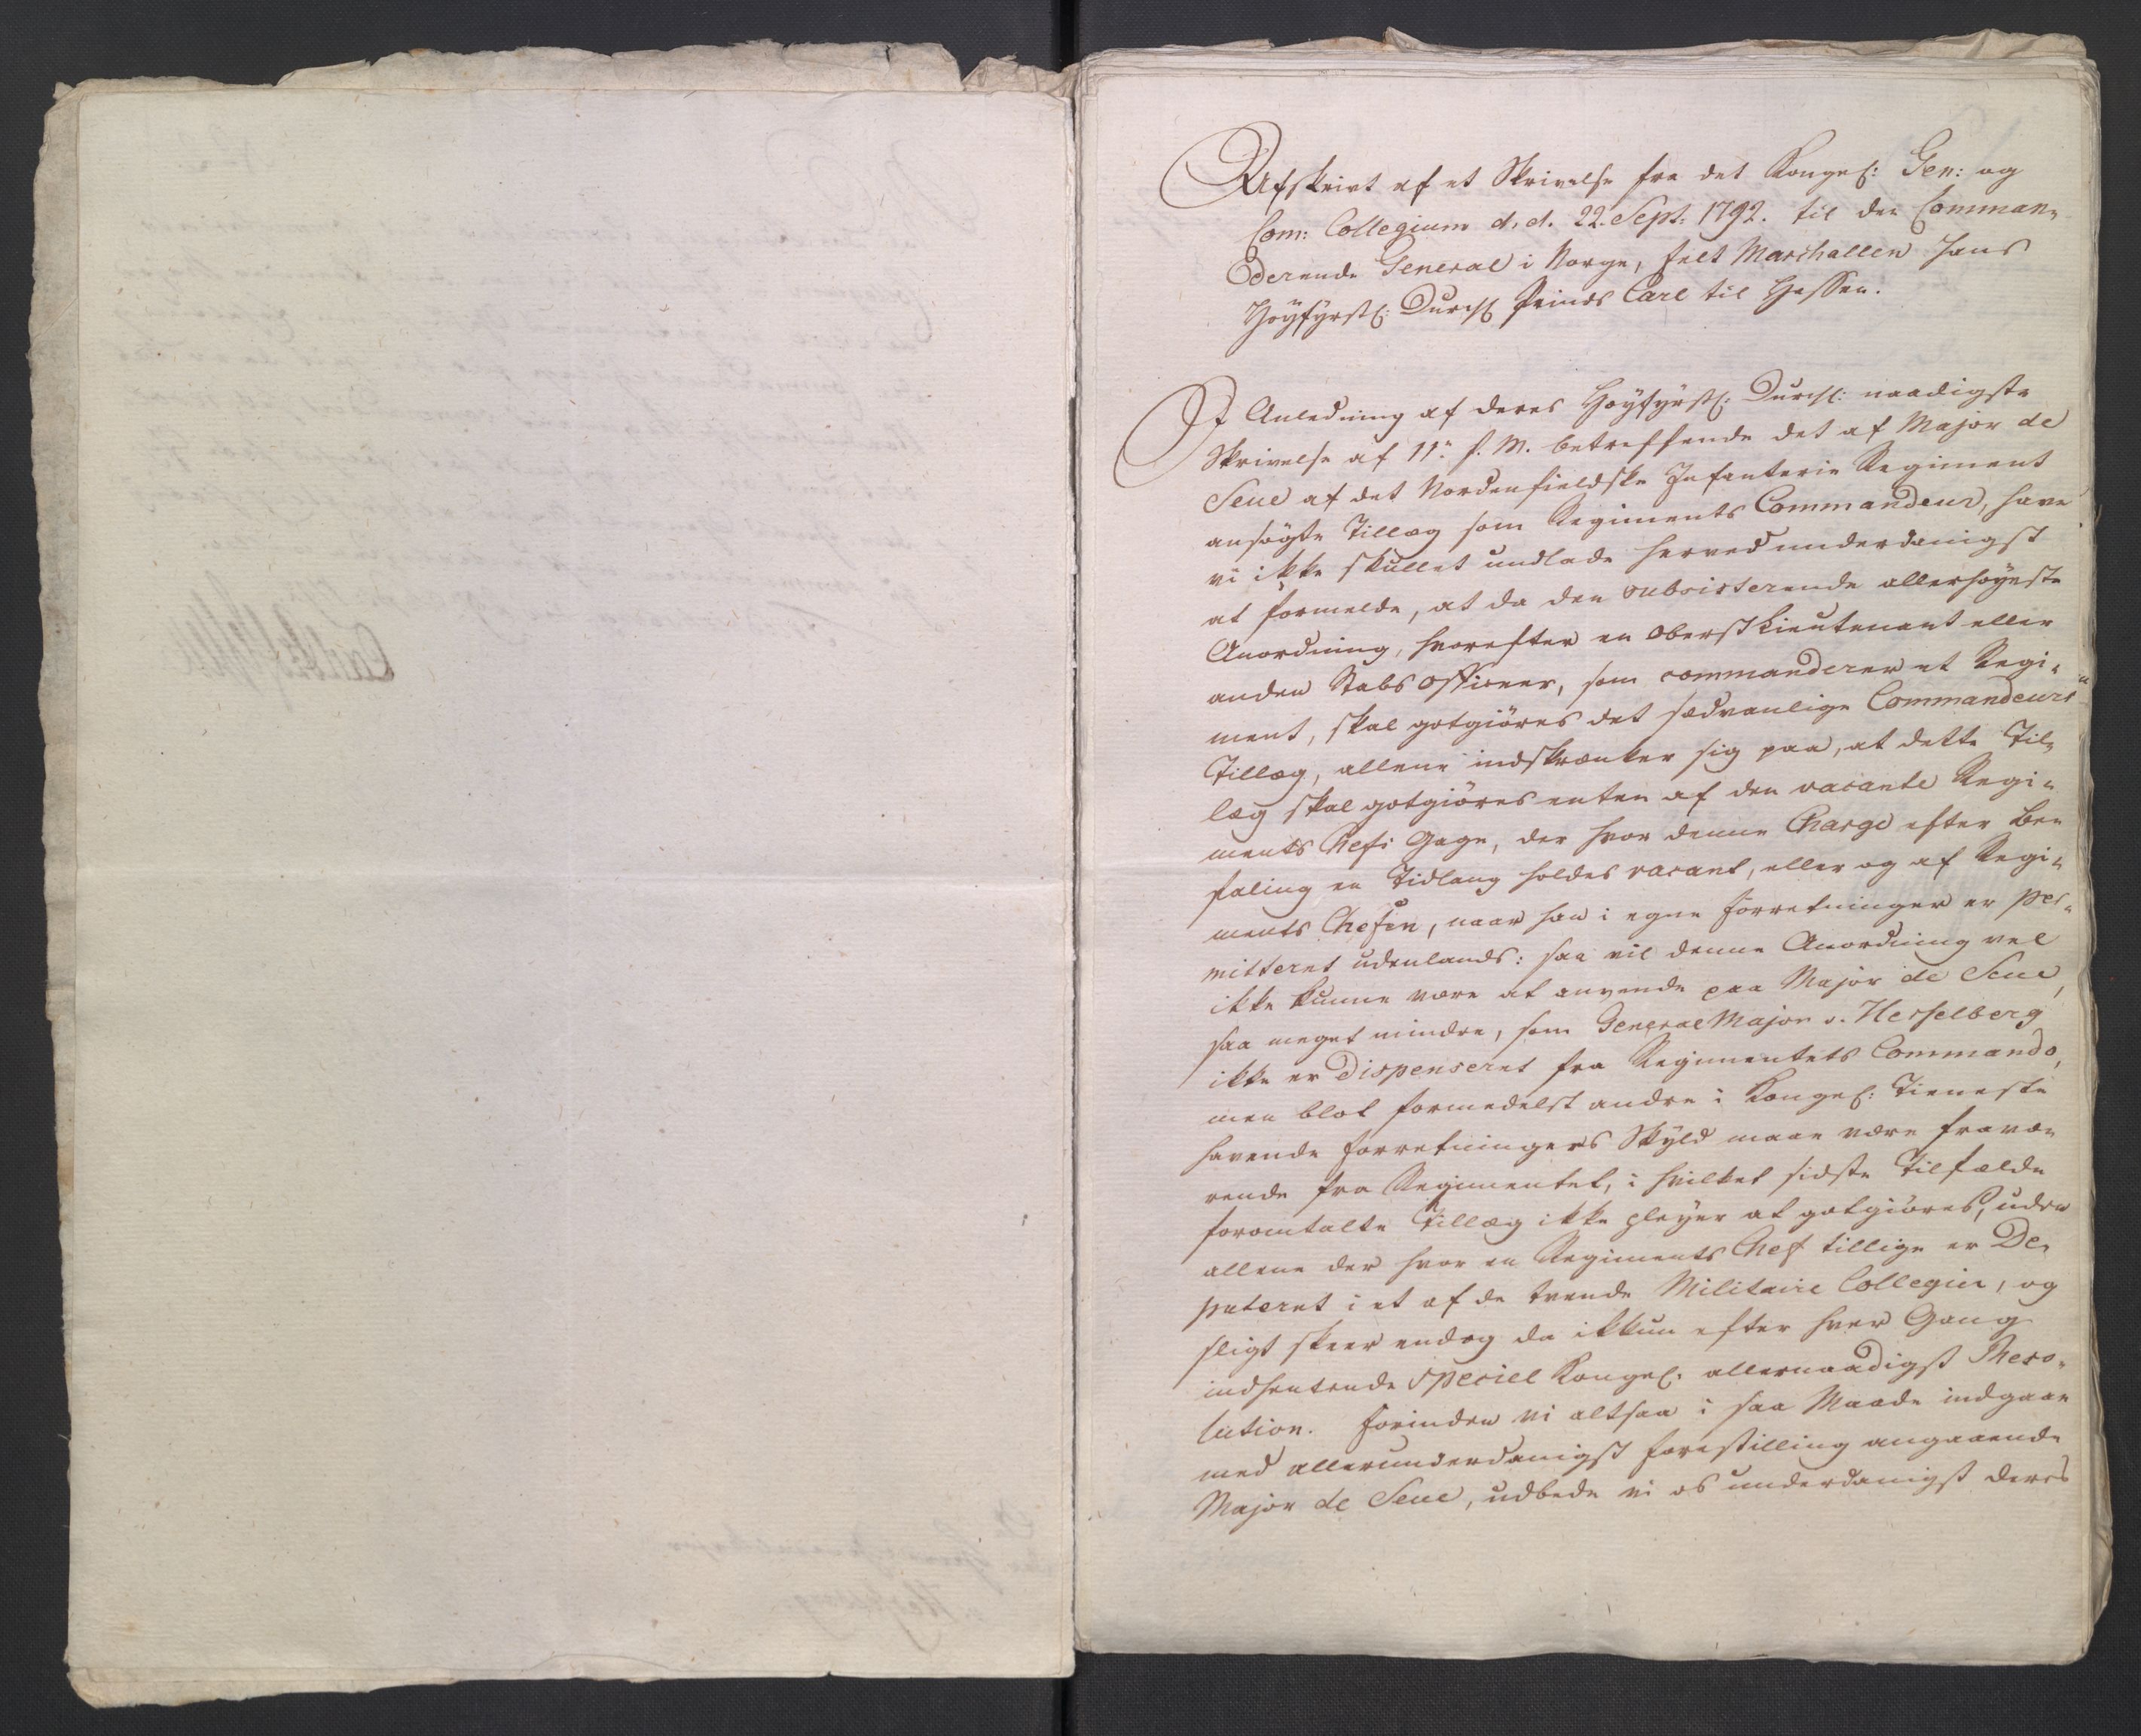 Afskrivt af et Skrivelse fra det Kongel: Gen: og
Com: Collegium d. d. 22. Sept: 1792. til den Comman-
derende General i Norge, Felt Marschallen Hans
Høyfyrstl: Durchl: Prinds Carl til Hessen.
I Anledning af Deres Høyfyrstl: Durchl: naadigste
Skrivelse af 11te f. M. betreffende det af Major de
Seue af det Nordenfieldske Infanterie Regiment
ansøgte Tillæg som Regiments Commandeur, have
vi ikke skullet undlade herved underdanigst
at formelde, at da den subsisterende allerhøyeste
Anordning, hvorefter en Oberst Lieutenant eller
anden Stabs Officeer, som commanderer et Regi-
ment, skal gotgiøres det sædvanlige Commandeurs
Tillæg, allene indskrænker sig paa, at dette Til-
læg skal gotgiøres enten af den vacante Regi-
ments Chefs Gage, der hvor denne Charge efter Be-
faling en Tidlang holdes vacant, eller og af Regi-
ments Chefen, naar han i egne Forretninger er per-
mitteret udenlands: saa vil denne Anordning vel
ikke kunne være at anvende paa Major de Seue,
saa meget mindre, som General Major v. Hesselberg
ikke er dispenseret fra Regimentets Commando,
men blot formedelst andre i Kongel: Tieneste
havende Forretningers Skyld maae være fravæ-
rende fra Regimentet, i hvilket sidste Tilfælde
foromtalte Tillæg ikke pleyer at gotgiøres, uden
allene der hvor en Regiments Chef tillige er De-
puteret i et af de tvende Militaire Collegier, og
sligt skeer endog da ikkun efter hver Gang
indhentende speciel Kongel: allernaadigst Reso-
lution. Forinden vi altsaa i saa Maade indgaae
med allerunderdanigst Forestilling angaaende
Major de Seue, udbede vi os underdanigst Deres